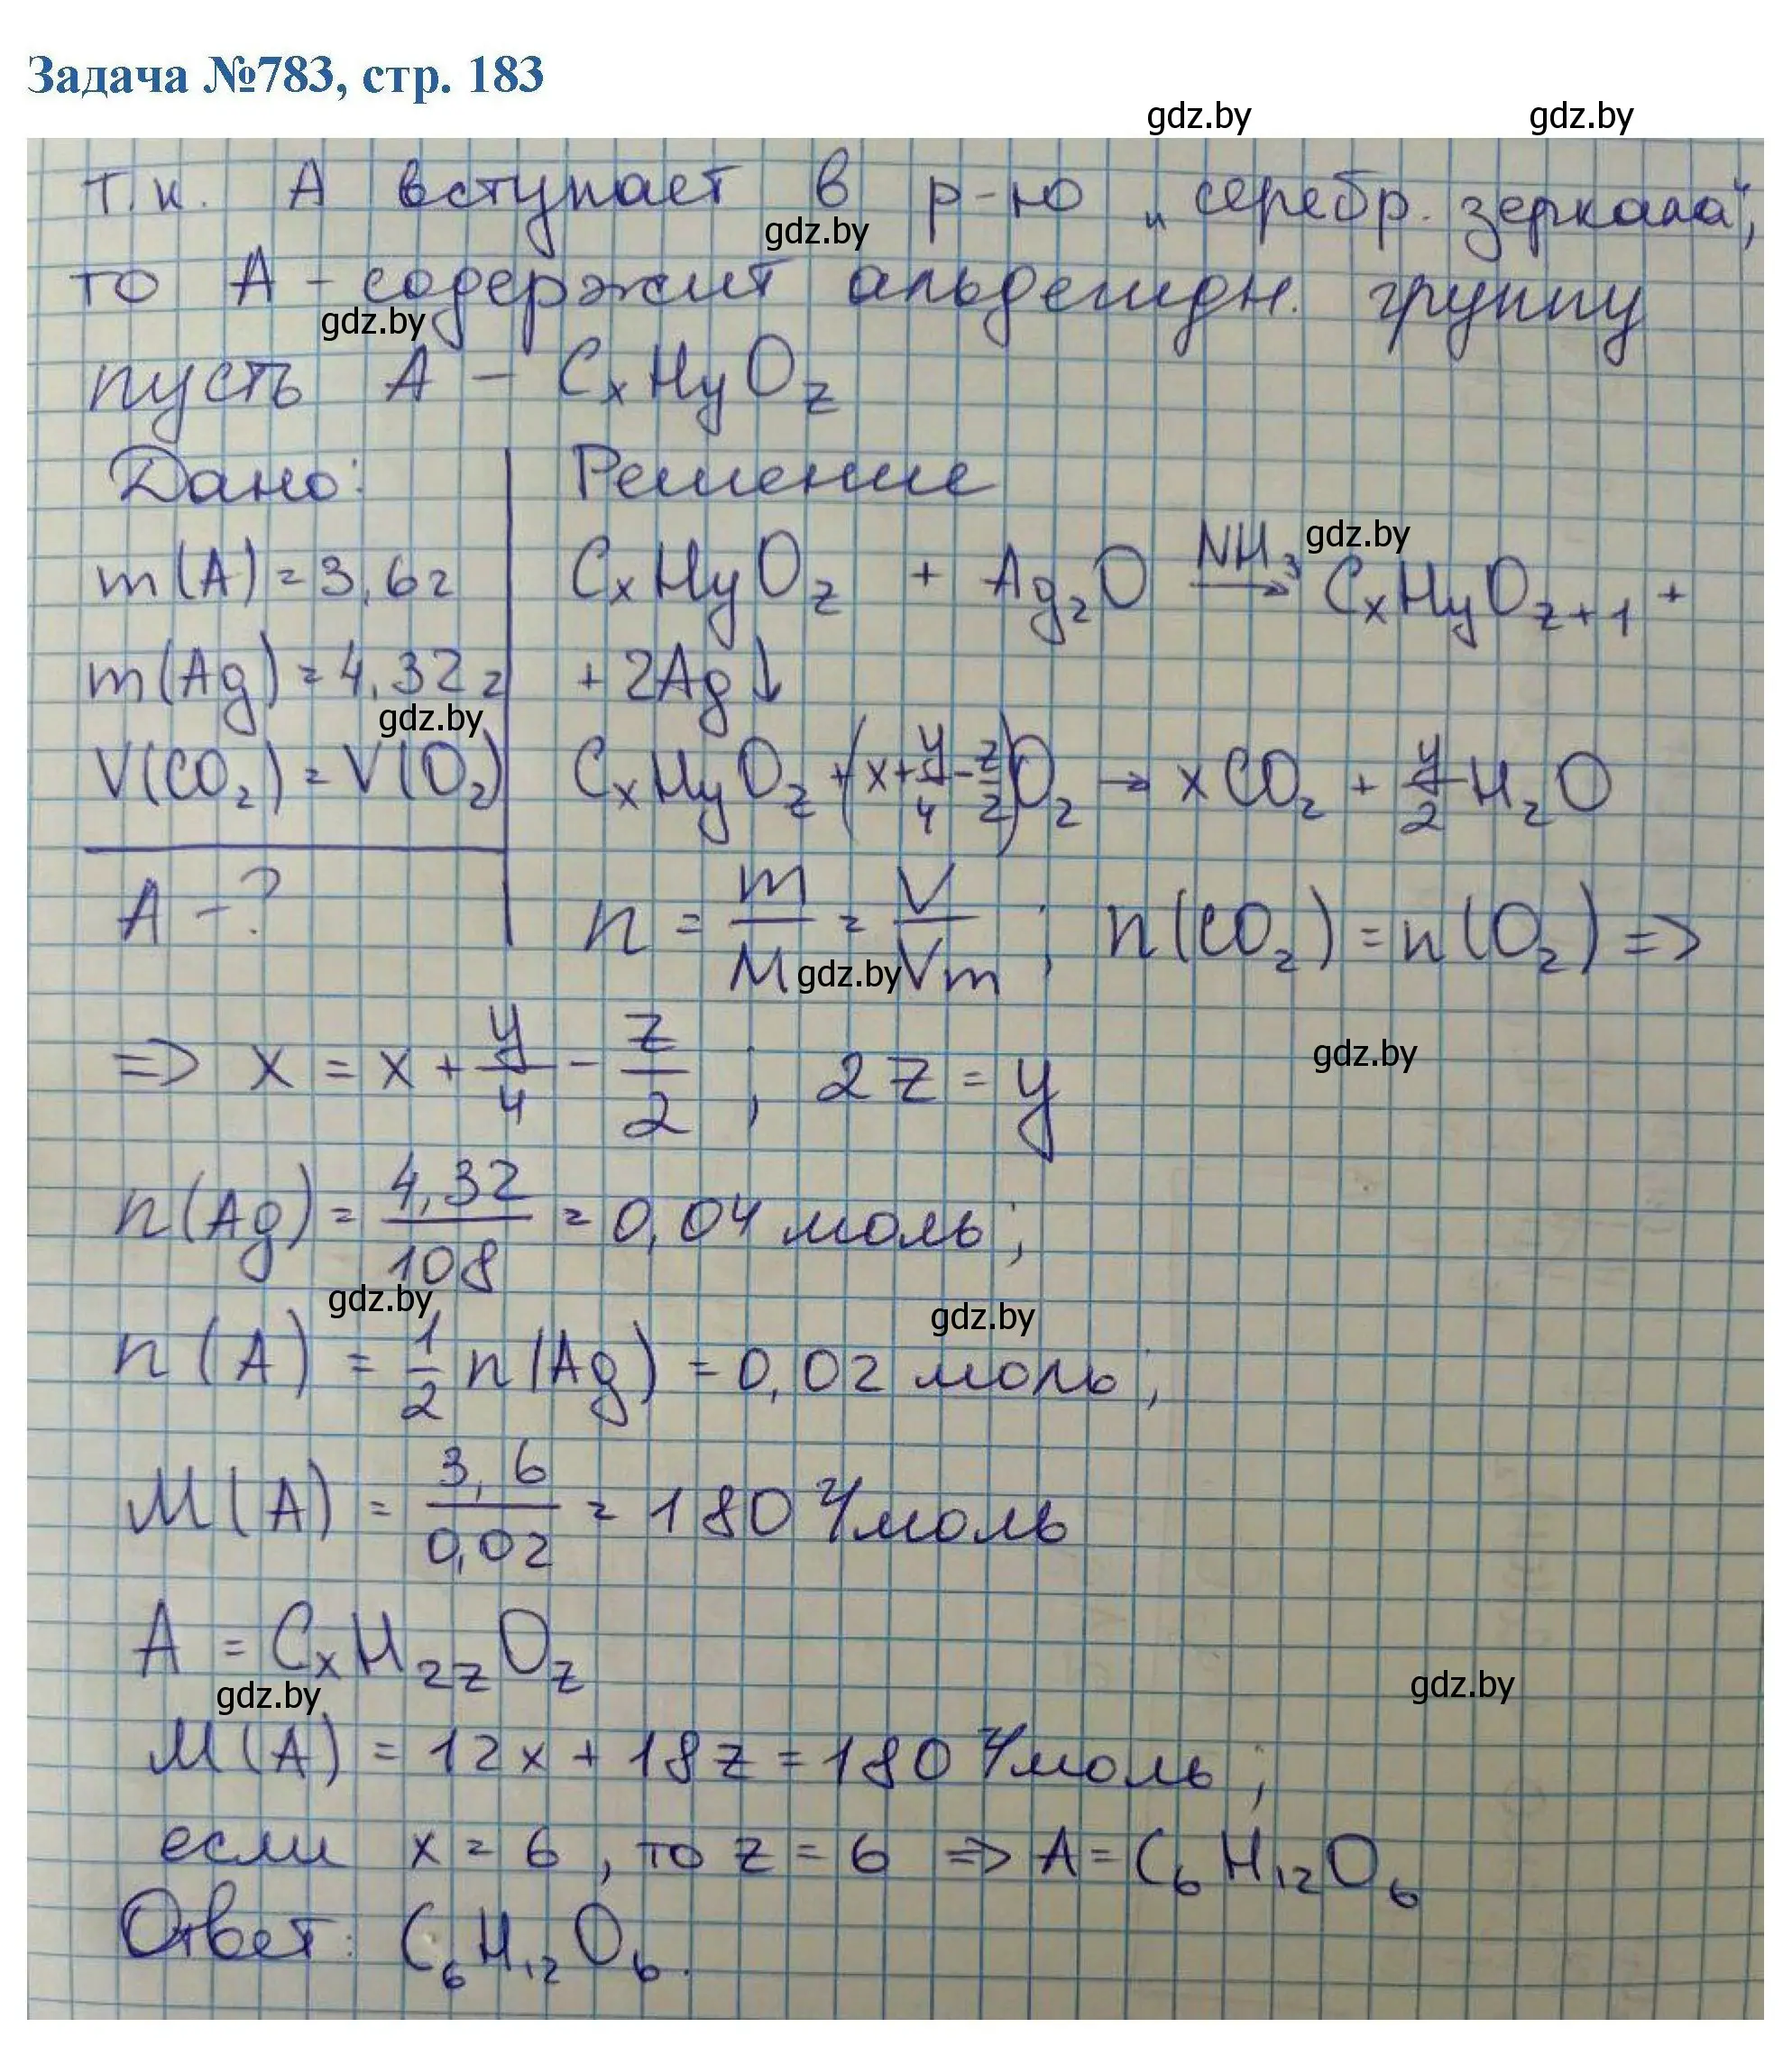 Задача №783, стр. 183
gdz.by gdz.by
т.к. А вступает в р-ю „серебр. зеркала“,
gdz.by
то А - содержит альдегидн. группу
gdz.by
пусть А - CₓHᵧO_z
Дано: Решение
gdz.by
m(A) = 3,6г CₓHᵧO_z + Ag₂O →(NH₃) CₓHᵧO_z+1 +
m(Ag) = 4,32г + 2Ag↓
gdz.by
V(CO₂) = V(O₂) CₓHᵧO_z + (x + y/4 - z/2)O₂ → xCO₂ + y/2 H₂O
A - ? n = m/M = V/Vm ; n(CO₂) = n(O₂) =>
gdz.by
=> x = x + y/4 - z/2 ; 2z = y
gdz.by
n(Ag) = 4,32/108 = 0,04 моль;
gdz.by gdz.by
n(A) = 1/2 n(Ag) = 0,02 моль;
M(A) = 3,6/0,02 = 180 г/моль
A = CₓH₂zO_z
gdz.by gdz.by
M(A) = 12x + 18z = 180 г/моль;
если x = 6, то z = 6 => A = C₆H₁₂O₆
Ответ: C₆H₁₂O₆.